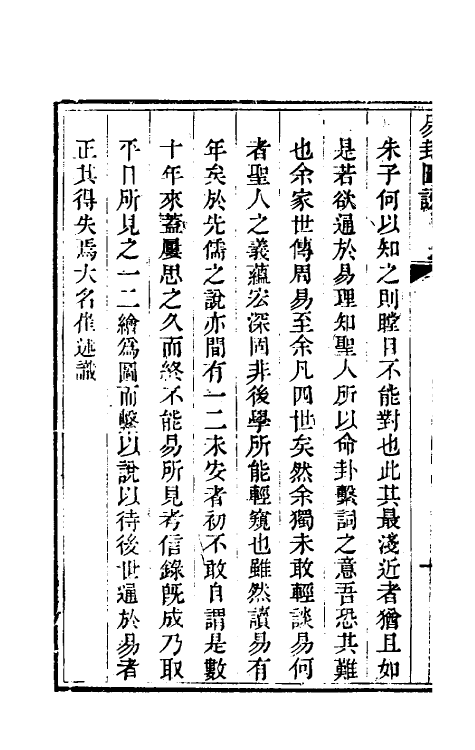 易卦圖說
朱子何以知之則瞠目不能對也此其最淺近者猶且如
是若欲通於易理知聖人所以命卦繫詞之意吾恐其難
也余家世傳周易至余凡四世矣然余獨未敢輕談易何
者聖人之義蘊宏深固非後學所能輕窺也雖然讀易有
年矣於先儒之說亦間有一二未安者初不敢自謂是數
十年來葢屢思之久而終不能易所見考信錄旣成乃取
平日所見之一二繪爲圖而繫以說以待後世通於易者
正其得失焉大名崔述識